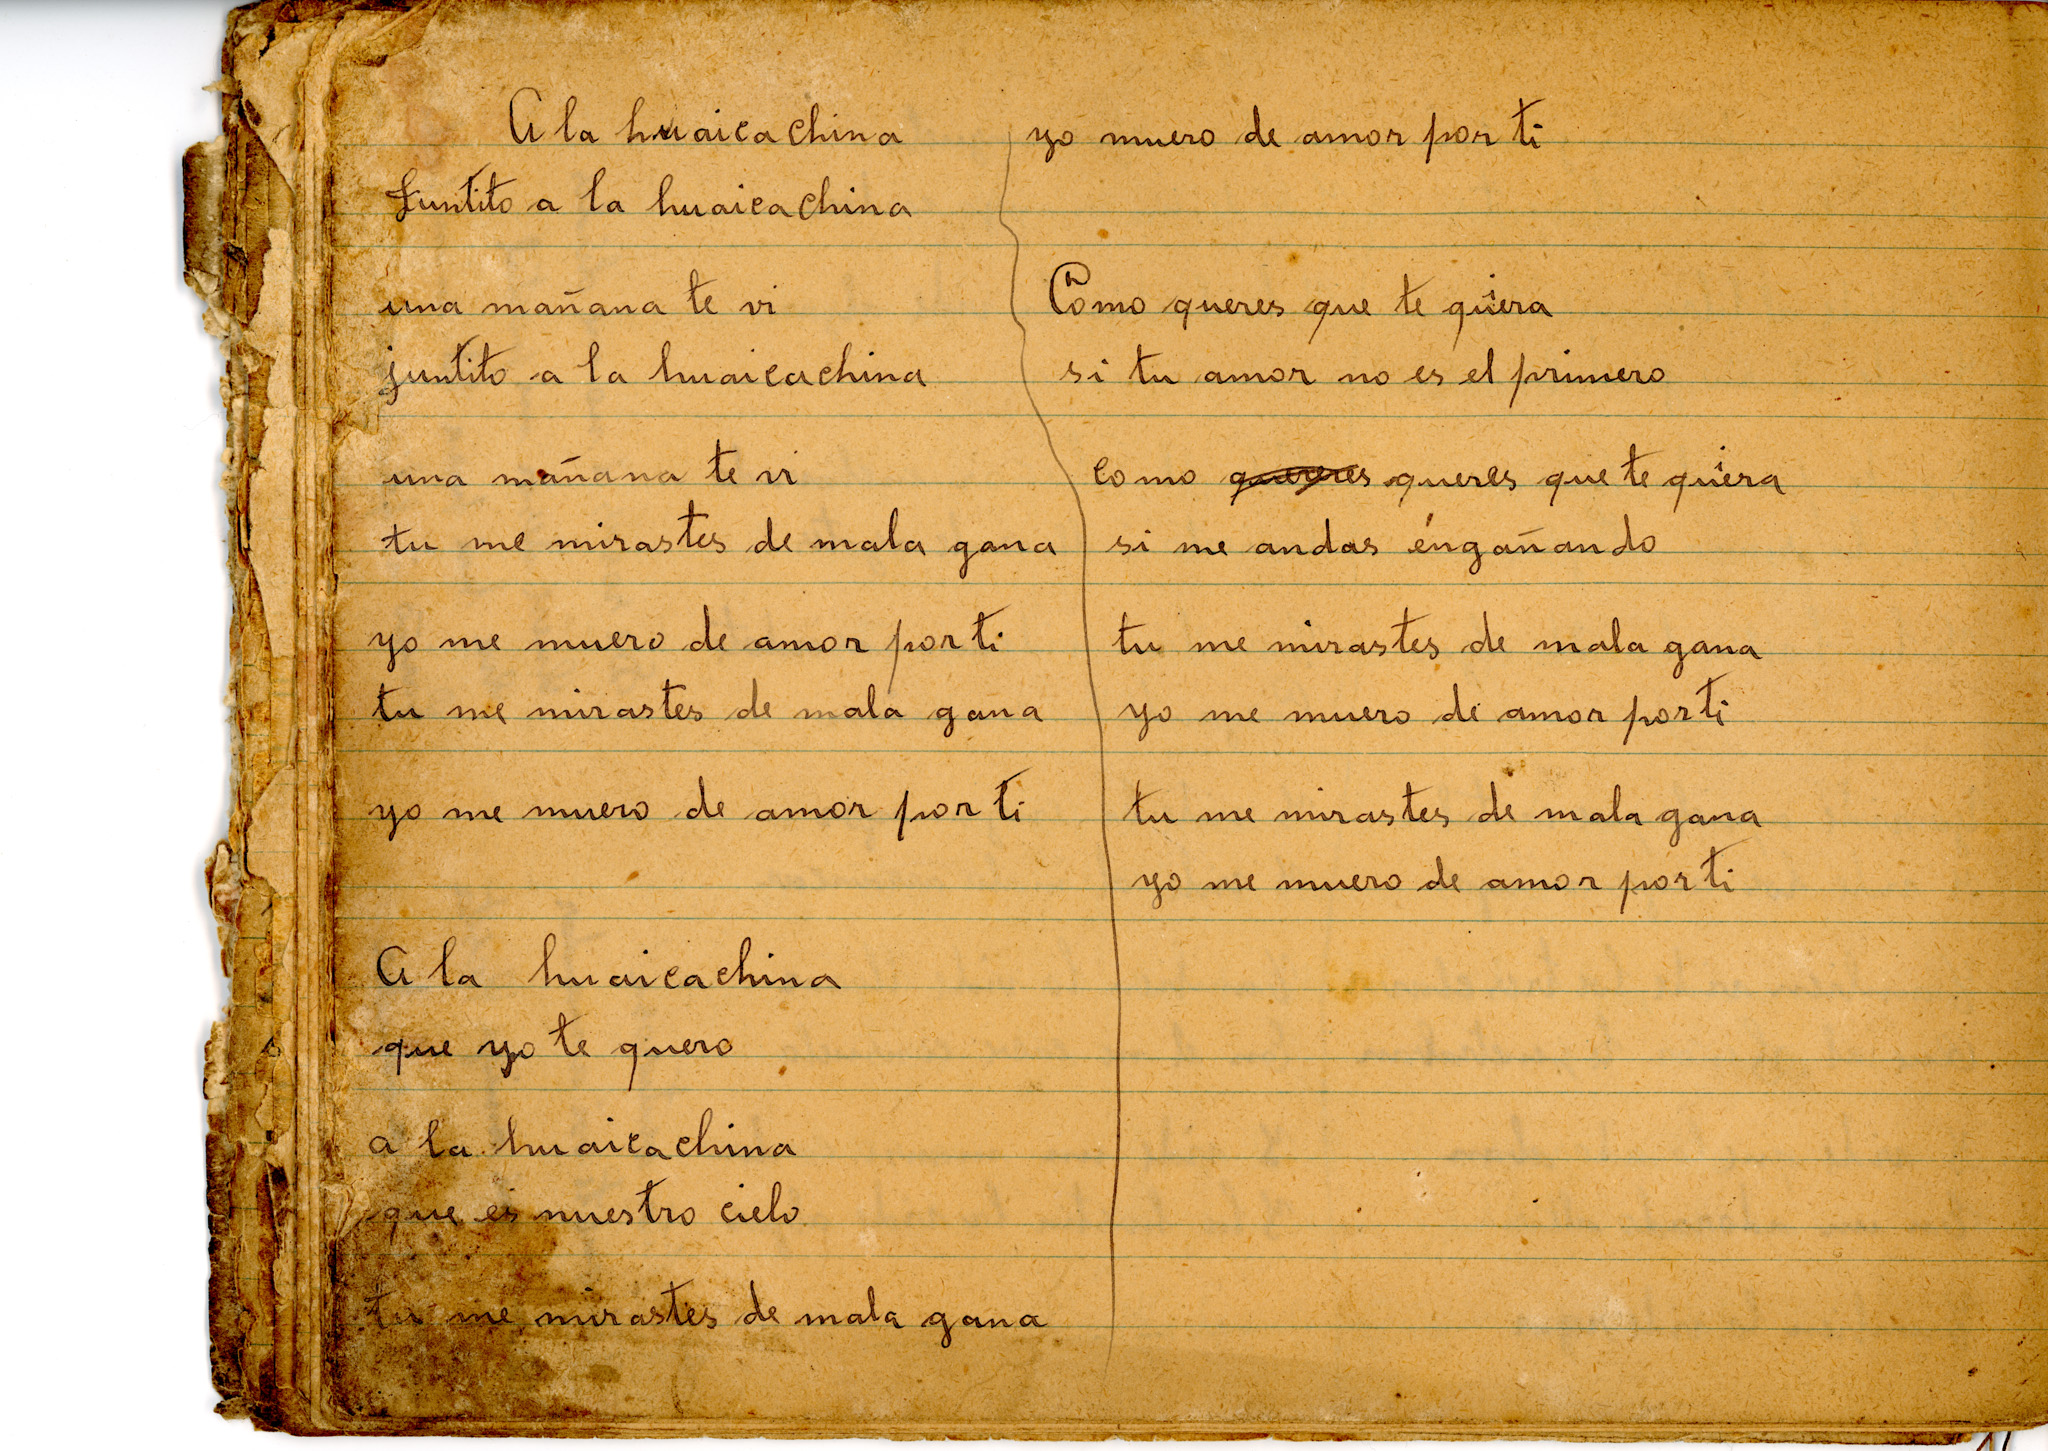 A la huaicachina
Juntito a la huaicachina
una mañana te vi
juntito a la huaicachina
una mañana te vi
tu me mirastes de mala gana
yo me muero de amor por ti
tu me mirastes de mala gana
yo me muero de amor por ti
A la huaicachina
que yo te quero
a la huaicachina
que es nuestro cielo
tu me mirastes de mala gana
yo muero de amor por ti
Como queres que te quiera
si tu amor no es el primero
como queres que te quiera
si me andas éngañando
tu me mirastes de mala gana
yo me muero de amor por ti
tu me mirastes de mala gana
yo me muero de amor por ti